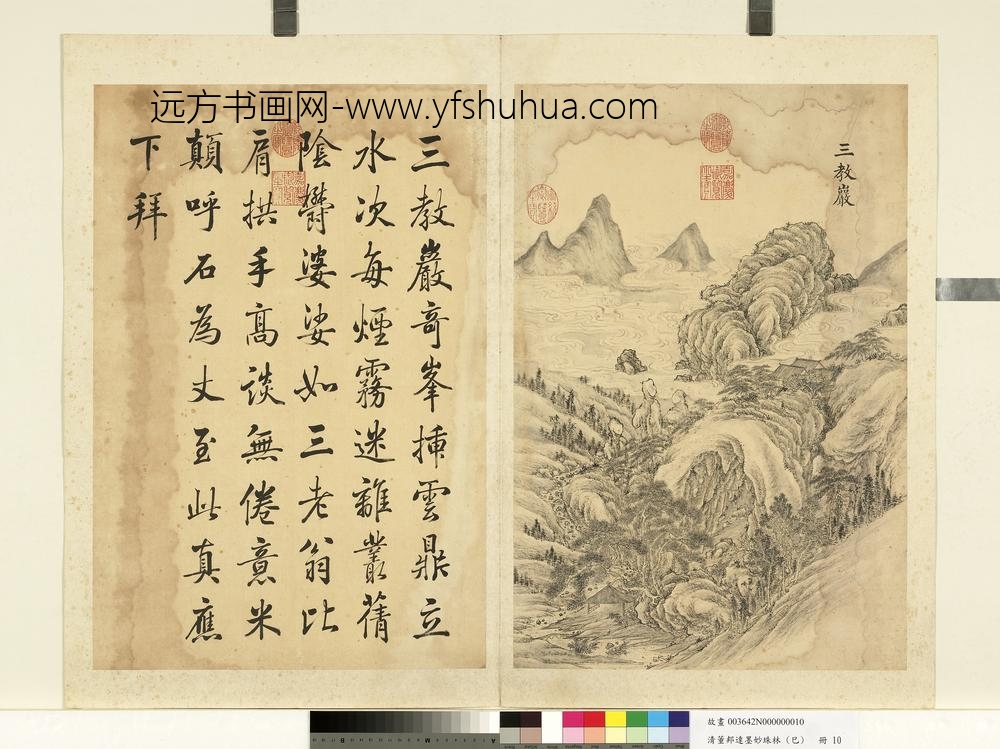 远方书画网-www.yfshuhua.com
三教巖
三教巖奇峯挿雲鼎立
水次每煙霧迷離叢蒨
陰欝婆娑如三老翁比
肩拱手高談無倦意米
顛呼石為丈至此真應
下拜
故畫 003642N000000010
清董邦達墨妙珠林(巳) 冊 10